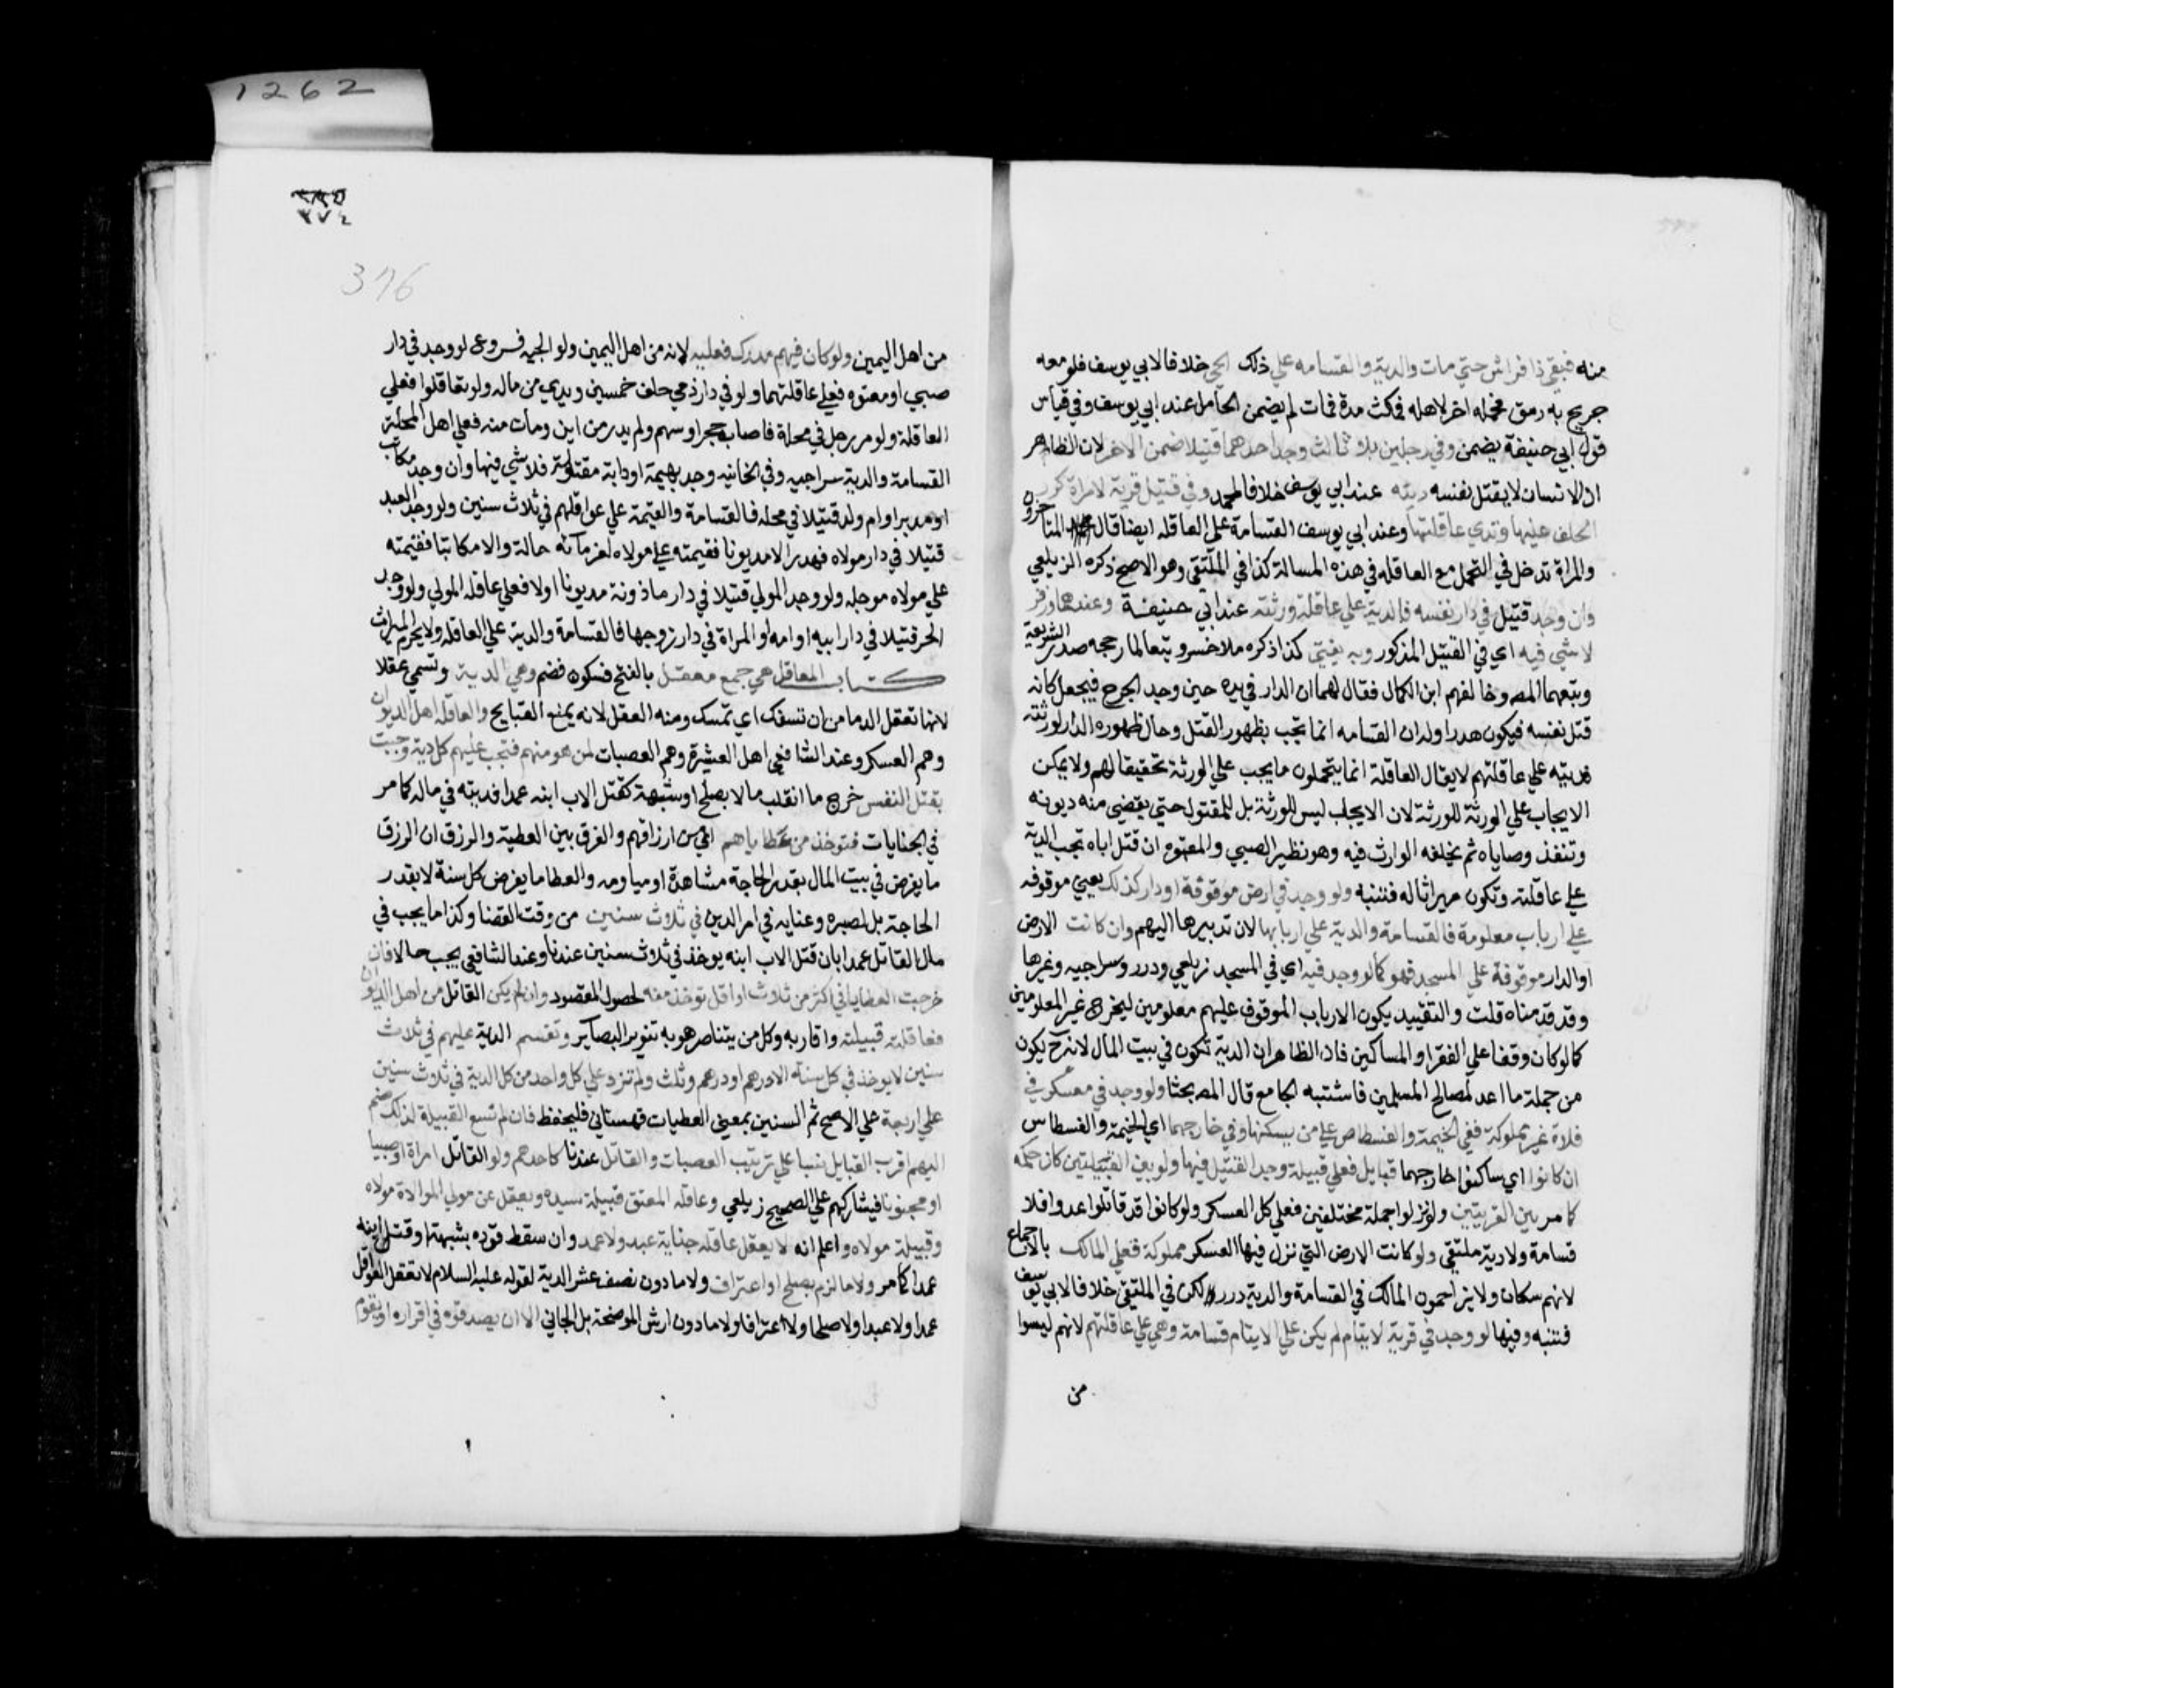 منه فبقي ذا فراش حتي مات والدية والقسامه علي ذلك الحي خلافا لابي يوسف فلو معه
جريح به رمق فحمله اخر لاهله فمكث مدة فمات لم يضمن الحامل عند ابي يوسف وفي قياس
قول ابي حنيفة يضمن وفي رجلين بلا ثالث وجد احدهما قتيلا ضمن الاخر لان الظاهر
ان الانسان لا يقتل نفسه ديته عند ابي يوسف خلافا لمحمد وفي قتيل قرية لامراة كرر
الحلف عليها وتدي عاقلتها وعند ابي يوسف القسامة علي العاقله ايضا قال المتاخرون
والمراة تدخل في التحمل مع العاقله في هذه المسالة كذا في الملتقي وهو الاصح ذكره الزيلعي
وان وجد قتيل في دار نفسه فالدية علي عاقلة ورثته عند ابي حنيفة وعندهما وزفر
لا شي فيه اي في القتيل المذكور وبه يفتي كذا ذكره ملا خسرو تبعا لما رجحه صدر الشريعة
وتبعهما المصـ وخالفهم ابن الكمال فقال لهما ان الدار في يده حين وجد الجرح فيجعل كانه
قتل نفسه فيكون هدرا وله ان القسامه انما تجب بظهور القتل وحال ظهوره الدار لورثته
فديته علي عاقلتهم لا يقال العاقلة انما يتحملون ما يجب علي الورثة تحقيقا لهم ولا يمكن
الايجاب علي الورثة للورثة لان الايجاب ليس للورثة بل للمقتول حتي يقضي منه ديونه
وتنفذ وصاياه ثم يخلفه الوارث فيه وهو نظير الصبي والمعتوه ان قتل اباه تجب الدية
علي عاقلته وتكون ميراثا له فتنبه ولو وجد في ارض موقوفة او دار كذلك يعني موقوفه
علي ارباب معلومة فالقسامة والدية علي اربابها لان تدبيرها اليهم وان كانت الارض
او الدار موقوفة علي المسجد فهو كما لو وجد فيه اي في المسجد زيلعي ودرر وسراجيه وغيرها
وقد قدمناه قلت والتقييد بكون الارباب الموقوف عليهم معلومين ليخرج غير المعلومين
كما لو كان وقفا علي الفقرا والمساكين فان الظاهر ان الدية تكون في بيت المال لانه ح يكون
من جملة ما اعد لمصالح المسلمين فاشتبه الجامع قال المصـ بحثا ولو وجد في معسكر في
فلاة غير مملوكة ففي الخيمة والفسطاط علي من يسكنها وفي خارجهما اي الخيمة والفسطاس
ان كانوا اي ساكنوا خارجهما قبايل فعلي قبيلة وجد القتيل فيها ولو بين القبيلتين كان حكمه
كما مر بين القريتين ولو نزلوا جملة مختلفين فعلي كل العسكر ولو كانوا قد قاتلوا عدوا فلا
قسامة ولا دية ملتقي ولو كانت الارض التي نزل فيها العسكر مملوكة فعلي المالك بالاجماع
لانهم سكان ولا يزاحمون المالك في القسامة والدية درر لكن في الملتقي خلافا لابي يوسف
فتنبه وفيها لو وجد في قرية لايتام لم يكن علي الايتام قسامة وهي علي عاقلتهم لانهم ليسوا
من
1262
٢٧٤
376
من اهل اليمين ولو كان فيهم مدرك فعليه لانه من اهل اليمين ولوالجيه فروع لو وجد في دار
صبي او معتوه فعلي عاقلتهما ولو في دار ذمي حلف خمسين ويدي من ماله ولو تعاقلوا فعلي
العاقلة ولو مر رجل في محلة فاصابه حجر او سهم ولم يدر من اين ومات منه فعلي اهل المحلة
القسامة والدية سراجيه وفي الخانيه وجد بهيمة او دابة مقتولة فلا شي فيها وان وجد مكاتب
او مدبر او ام ولد قتيلا في محله فالقسامة والقيمة علي عواقلهم في ثلاث سنين ولو وجد العبد
قتيلا في دار مولاه فهدر الا مديونا فقيمته علي مولاه لغرمائه حالة والا مكاتبا فقيمته
علي مولاه موجله ولو وجد المولي قتيلا في دار ماذونة مديونا اولا فعلي عاقله المولي ولو وجد
الحر قتيلا في دار ابيه او امه او المراة في دار زوجها فالقسامة والدية علي العاقله ولا يحرم الميراث
كتاب المعاقل هي جمع معقل بالفتح فسكون فضم وهي الدية وتسمي عقلا
لانها تعقل الدما من ان تسفك اي تمسك ومنه العقل لانه يمنع القبايح والعاقله اهل الديوان
وهم العسكر وعند الشافعي اهل العشيرة وهم العصبات لمن هو منهم فتجب عليهم كل دية وجبت
بقتل النفس خرج ما انقلب مالا بصلح او شبهة كقتل الاب ابنه عمدا فديته في ماله كما مر
في الجنايات فتوخذ من عطاياهم او من ارزاقهم والفرق بين العطية والرزق ان الرزق
ما يفرض في بيت المال بقدر الحاجة مشاهرة او مياومه والعطا ما يفرض كل سنة لا بقدر
الحاجة بل لصبره وعنايه في امر الدين في ثلاث سنين من وقت القضا وكذا ما يجب في
مال القاتل عمدا بان قتل الاب ابنه يوخذ في ثلاث سنين عندنا وعند الشافعي يجب حالا فان
خرجت العطايا في اكثر من ثلاث او اقل توخذ منه لحصول المقصود وان لم يكن القاتل من اهل الديوان
فعاقلته قبيلته واقاربه وكل من يتناصر هو به تنوير البصاير وتقسم الدية عليهم في ثلاث
سنين لا يوخذ في كل سنة الا درهم او درهم وثلث ولم تزد علي كل واحد من كل الدية في ثلاث سنين
علي اربعة علي الاصح ثم السنين بمعني العطيات قهستاني فليحفظ فان لم تسع القبيلة لذلك ضم
اليهم اقرب القبايل نسبا علي ترتيب العصبات والقاتل عندنا كاحدهم ولو القاتل امراة او صبيا
او مجنونا فيشاركهم علي الصحيح زيلعي وعاقله المعتق قبيلة سيده ويعقل عن مولي الموالاة مولاه
وقبيلة مولاه واعلم انه لا يعقل عاقله جناية عبد ولا عمد وان سقط قوده بشبهة او قتل ابنه
عمدا كما مر ولا ما لزم بصلح او اعتراف ولا ما دون نصف عشر الدية لقوله عليه السلام لا تعقل العواقل
عمدا ولا عبدا ولا صلحا ولا اعترافا ولا ما دون ارش الموضحة بل الجاني الا ان يصدقوه في اقراره او تقوم